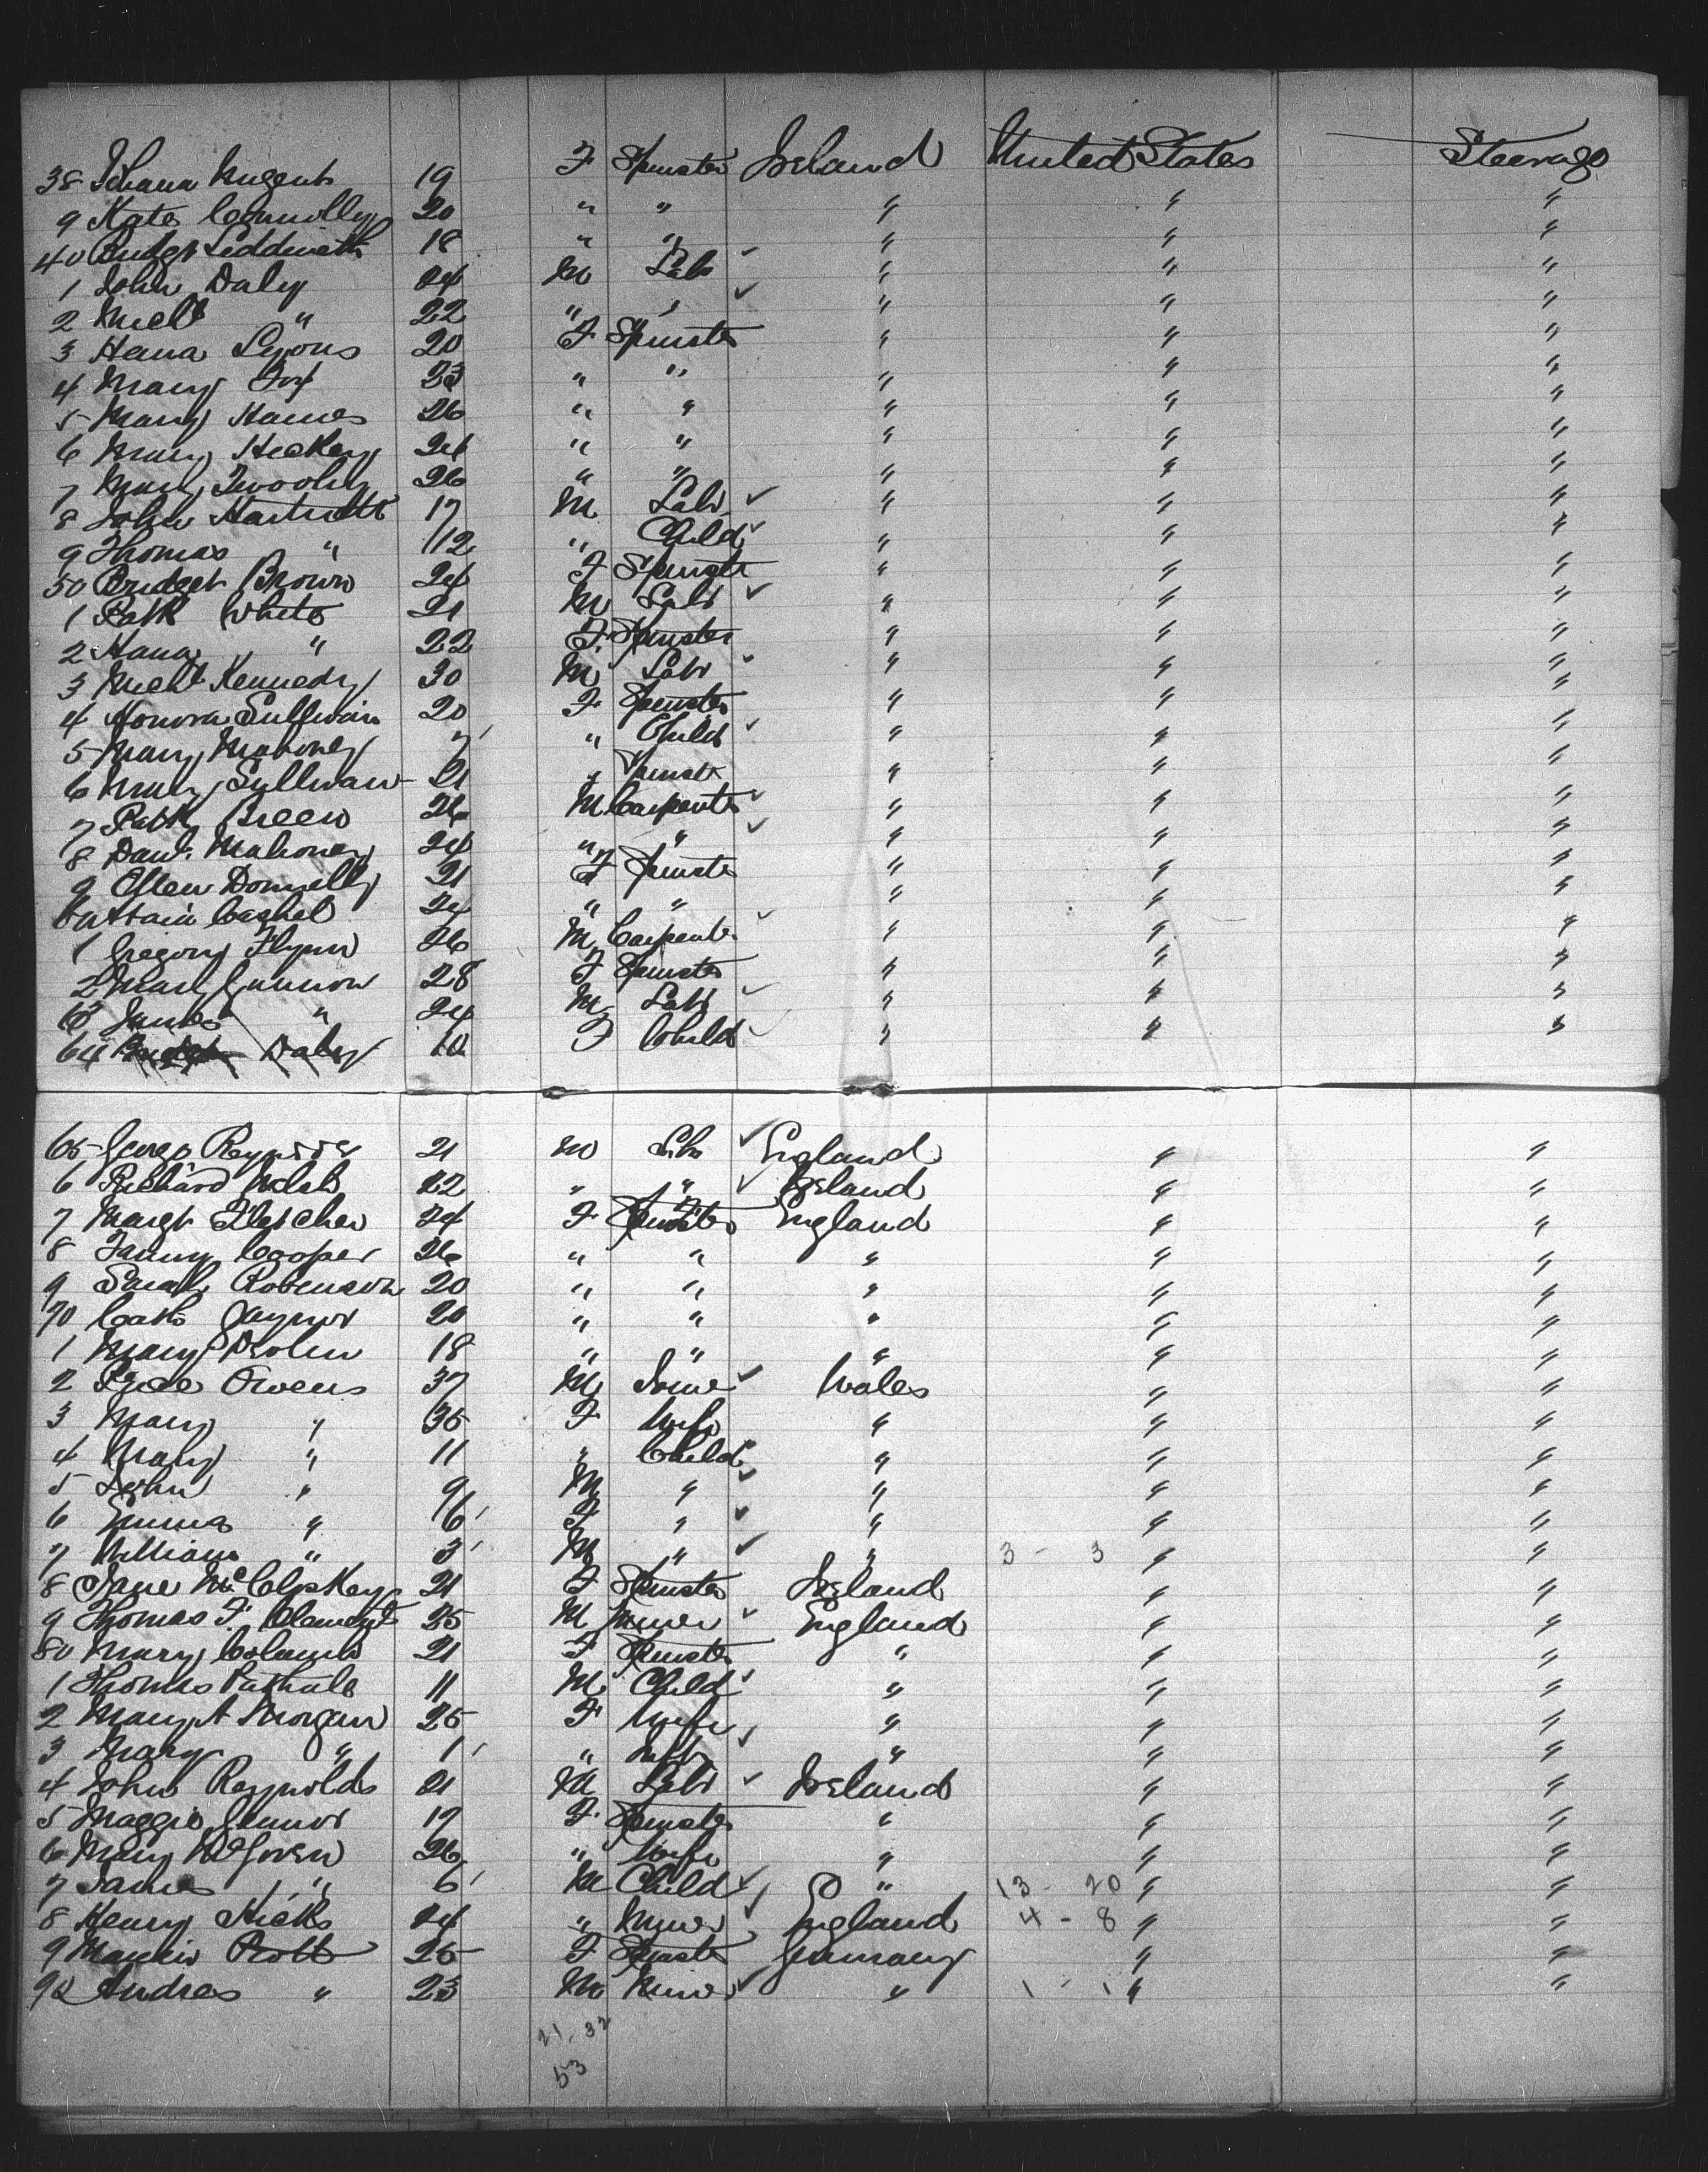 38 Johana Nugent 19 F Spinster Ireland United States Steerage
9 Kate Connolly 20 " " " " "
40 Bridgt Leddwith 18 " " " " "
1 John Daly 24 M Labr " " "
2 Michl " 22 " " " " "
3 Hana Lyons 20 F Spinster " " "
4 Mary Fox 23 " " " " "
5 Mary Hames 26 " " " " "
6 Mary Hickey 24 " " " " "
7 Mary Twoohy 26 " " " " "
8 John Hartnett 17 M Labr " " "
9 Thomas " 112 " Child " " "
50 Bridget Brown 24 F Spinster " " "
1 Patk White 21 M Labr " " "
2 Hana " 22 F Spinster " " "
3 Michl Kennedy 30 M Labr " " "
4 Honora Sullivan 20 F Spinster " " "
5 Mary Mahoney 7 " Child " " "
6 Mary Sullivan 21 " Spinster " " "
7 Patk Breen 26 M Carpenter " " "
8 Danl. Mahoney 24 " " " " "
9 Ellen Donnelly 21 F Spinster " " "
Cashel 24 " " " " "
1 Gregory Flynn 26 M Carpenter " " "
2 Mary Gunnon 28 F Spinster " " "
63 James " 24 M Labr " " "
64 Bridget Daly 10 F Child " " "
65 George Reynolds 21 M Labr England " "
6 Richard Welsh 22 " " Ireland " "
7 Margt Fletcher 24 F Spinster England " "
8 Fanny Cooper 26 " " " " "
9 Sarah Robinson 20 " " " " "
70 Cath Gaynor 20 " " " " "
1 Mary 18 " " " " "
2 Owens 37 M Wales " "
3 Mary " 35 F Wife " " "
4 Mary " 11 " Child " " "
5 John " 9 M " " " "
6 Emma " 6 F " " " "
7 William " 3 M " " 3 - 3 " "
8 Jane McCloskey 21 F Spinster Ireland " "
9 Thomas F. Clement 25 M Miner England " "
80 Mary Columb 21 F Spinster " " "
1 Thomas 11 M Child " " "
2 Mary A Morgan 25 F Wife " " "
3 Mary " 1 " Inft " " "
4 John Reynolds 21 M Labr Ireland " "
5 Maggie Gunnor 17 F Spinster " " "
6 Mary McGovern 26 " Wife " " "
7 James " 6 M Child " 13 - 20 " "
8 Henry Hicks 24 " Miner England 4 - 8 " "
9 Prott 25 F Spinster Germany " "
90 Andreas " 23 M Miner " 1 - 1 " "
21. 32
53